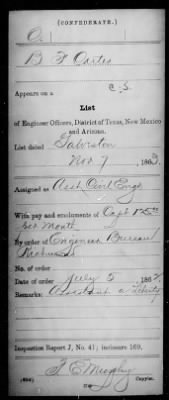 (CONFEDERATE.)
B F
C. S.
Appears on a
List
of Engineer Officers, District of Texas, New Mexico
and Arizona.
List dated Galveston
Nov 7, 1863
Assigned as Asst Civil Engr
With pay and emoluments of Capt 125 00
per month
By order of Engineer Bureau
Richmond
No. of order
Date of order July 5, 186
Remarks: Assistant
Inspection Report J, No. 41; inclosure 169.
T. E. Murphy
Copyist.